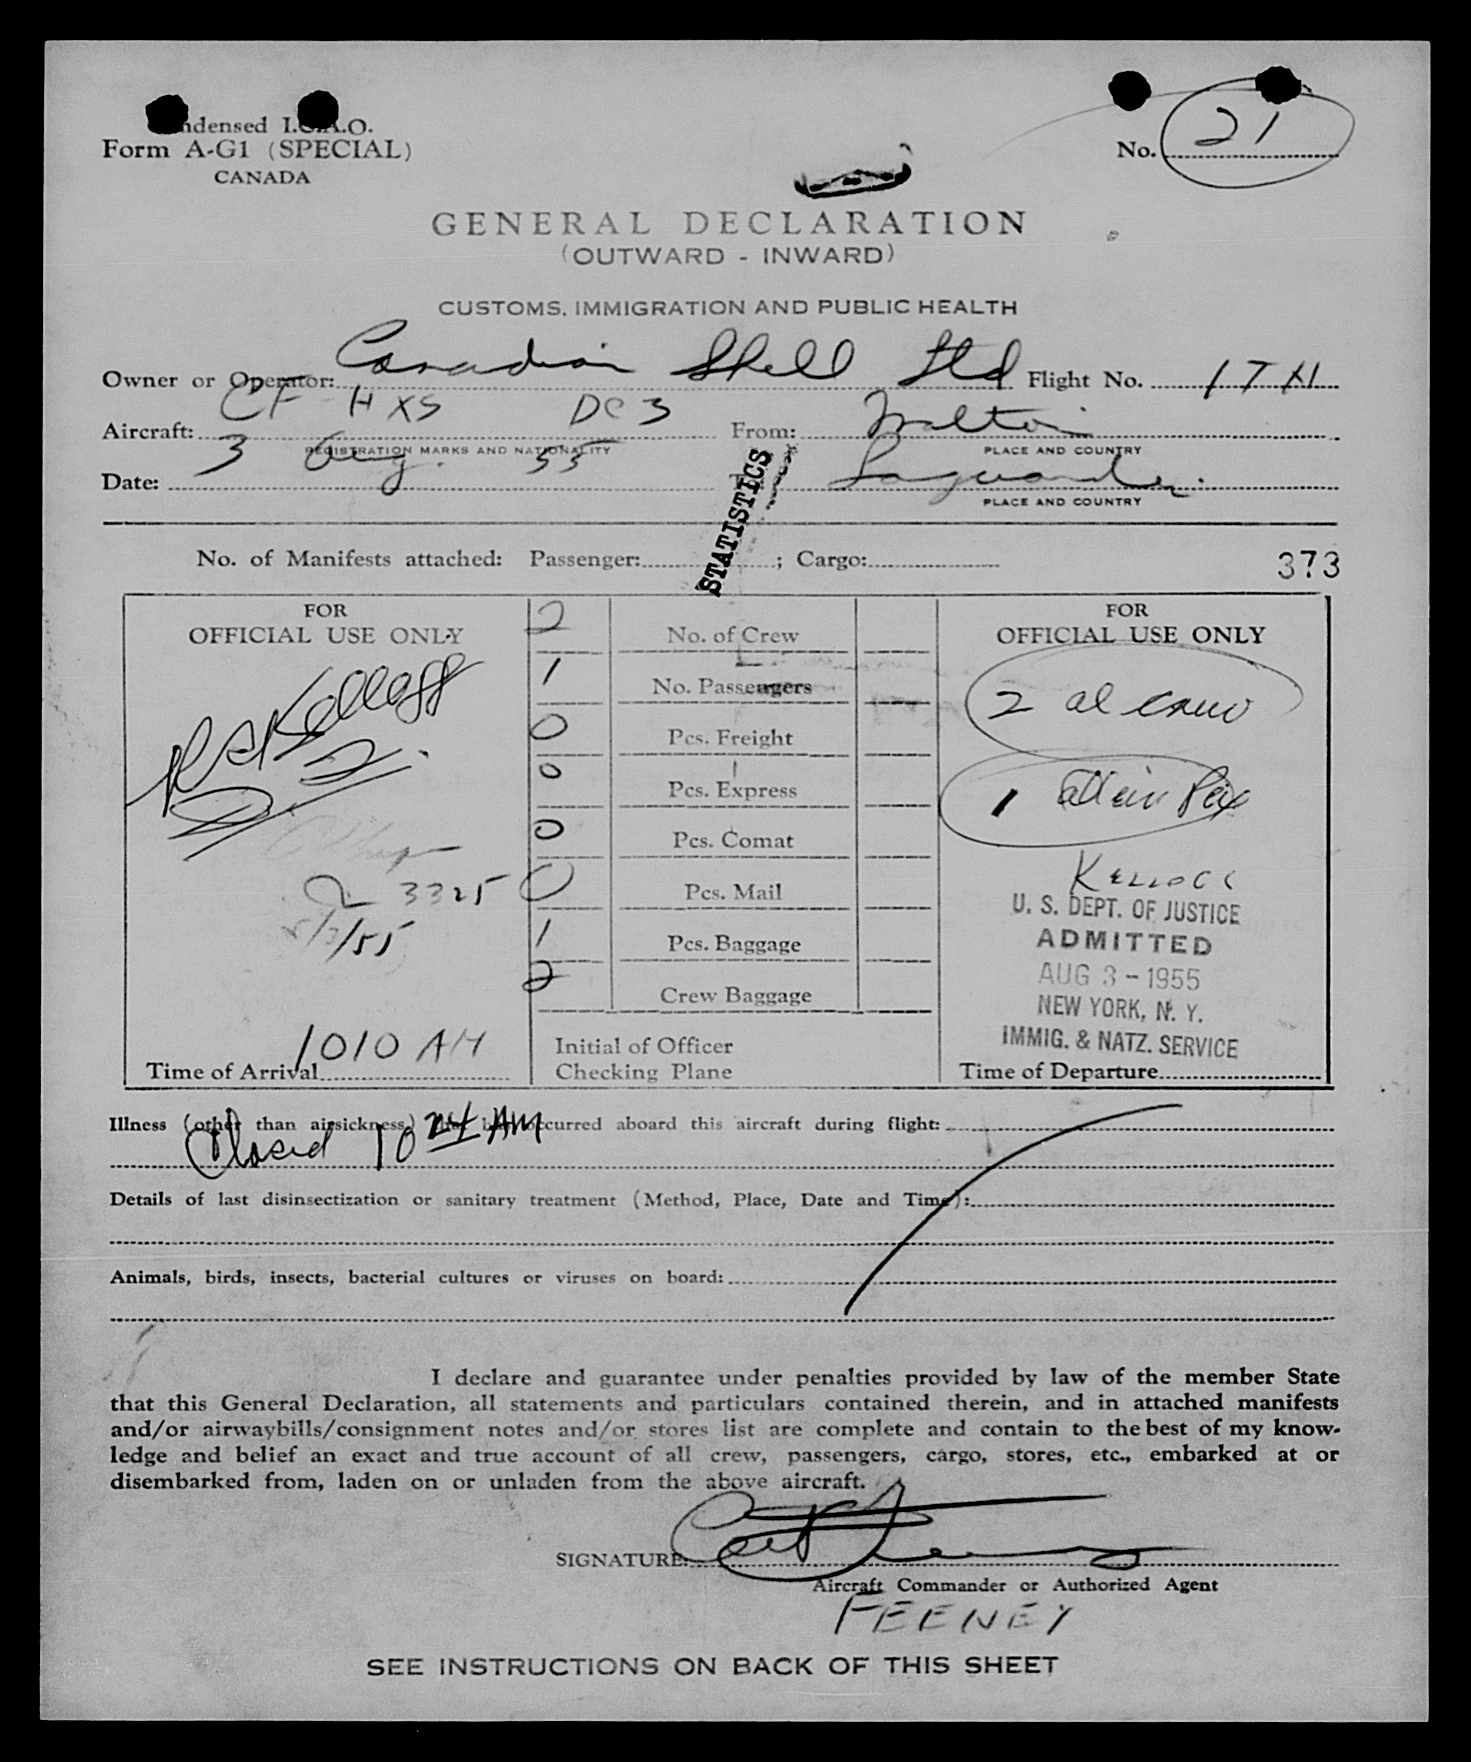 Condensed I.C.A.O.
Form A-G1 (SPECIAL)
CANADA
No. 21
GENERAL DECLARATION
(OUTWARD - INWARD)
CUSTOMS, IMMIGRATION AND PUBLIC HEALTH
Owner or Operator: Canadian Shell Ltd Flight No.
Aircraft: CF-HXS DC3 From: Malton
REGISTRATION MARKS AND NATIONALITY PLACE AND COUNTRY
Date: 3 Aug. 55 Laguardia.
PLACE AND COUNTRY
STATISTICS
No. of Manifests attached: Passenger: ; Cargo: 373
FOR
OFFICIAL USE ONLY
Kellogg
3325
/55
1010 AM
Time of Arrival
2 No. of Crew
1 No. Passengers
0 Pcs. Freight
0 Pcs. Express
0 Pcs. Comat
0 Pcs. Mail
1 Pcs. Baggage
2 Crew Baggage
Initial of Officer
Checking Plane
FOR
OFFICIAL USE ONLY
2 al crew
1 alien Pax
U. S. DEPT. OF JUSTICE
ADMITTED
AUG 3 - 1955
NEW YORK, N. Y.
IMMIG. & NATZ. SERVICE
Time of Departure
Illness (other than airsickness) that has occurred aboard this aircraft during flight:
Closed 10 24 AM
Details of last disinsectization or sanitary treatment (Method, Place, Date and Time):
Animals, birds, insects, bacterial cultures or viruses on board:
I declare and guarantee under penalties provided by law of the member State
that this General Declaration, all statements and particulars contained therein, and in attached manifests
and/or airwaybills/consignment notes and/or stores list are complete and contain to the best of my know-
ledge and belief an exact and true account of all crew, passengers, cargo, stores, etc., embarked at or
disembarked from, laden on or unladen from the above aircraft.
SIGNATURE:
Aircraft Commander or Authorized Agent
FEENEY
SEE INSTRUCTIONS ON BACK OF THIS SHEET